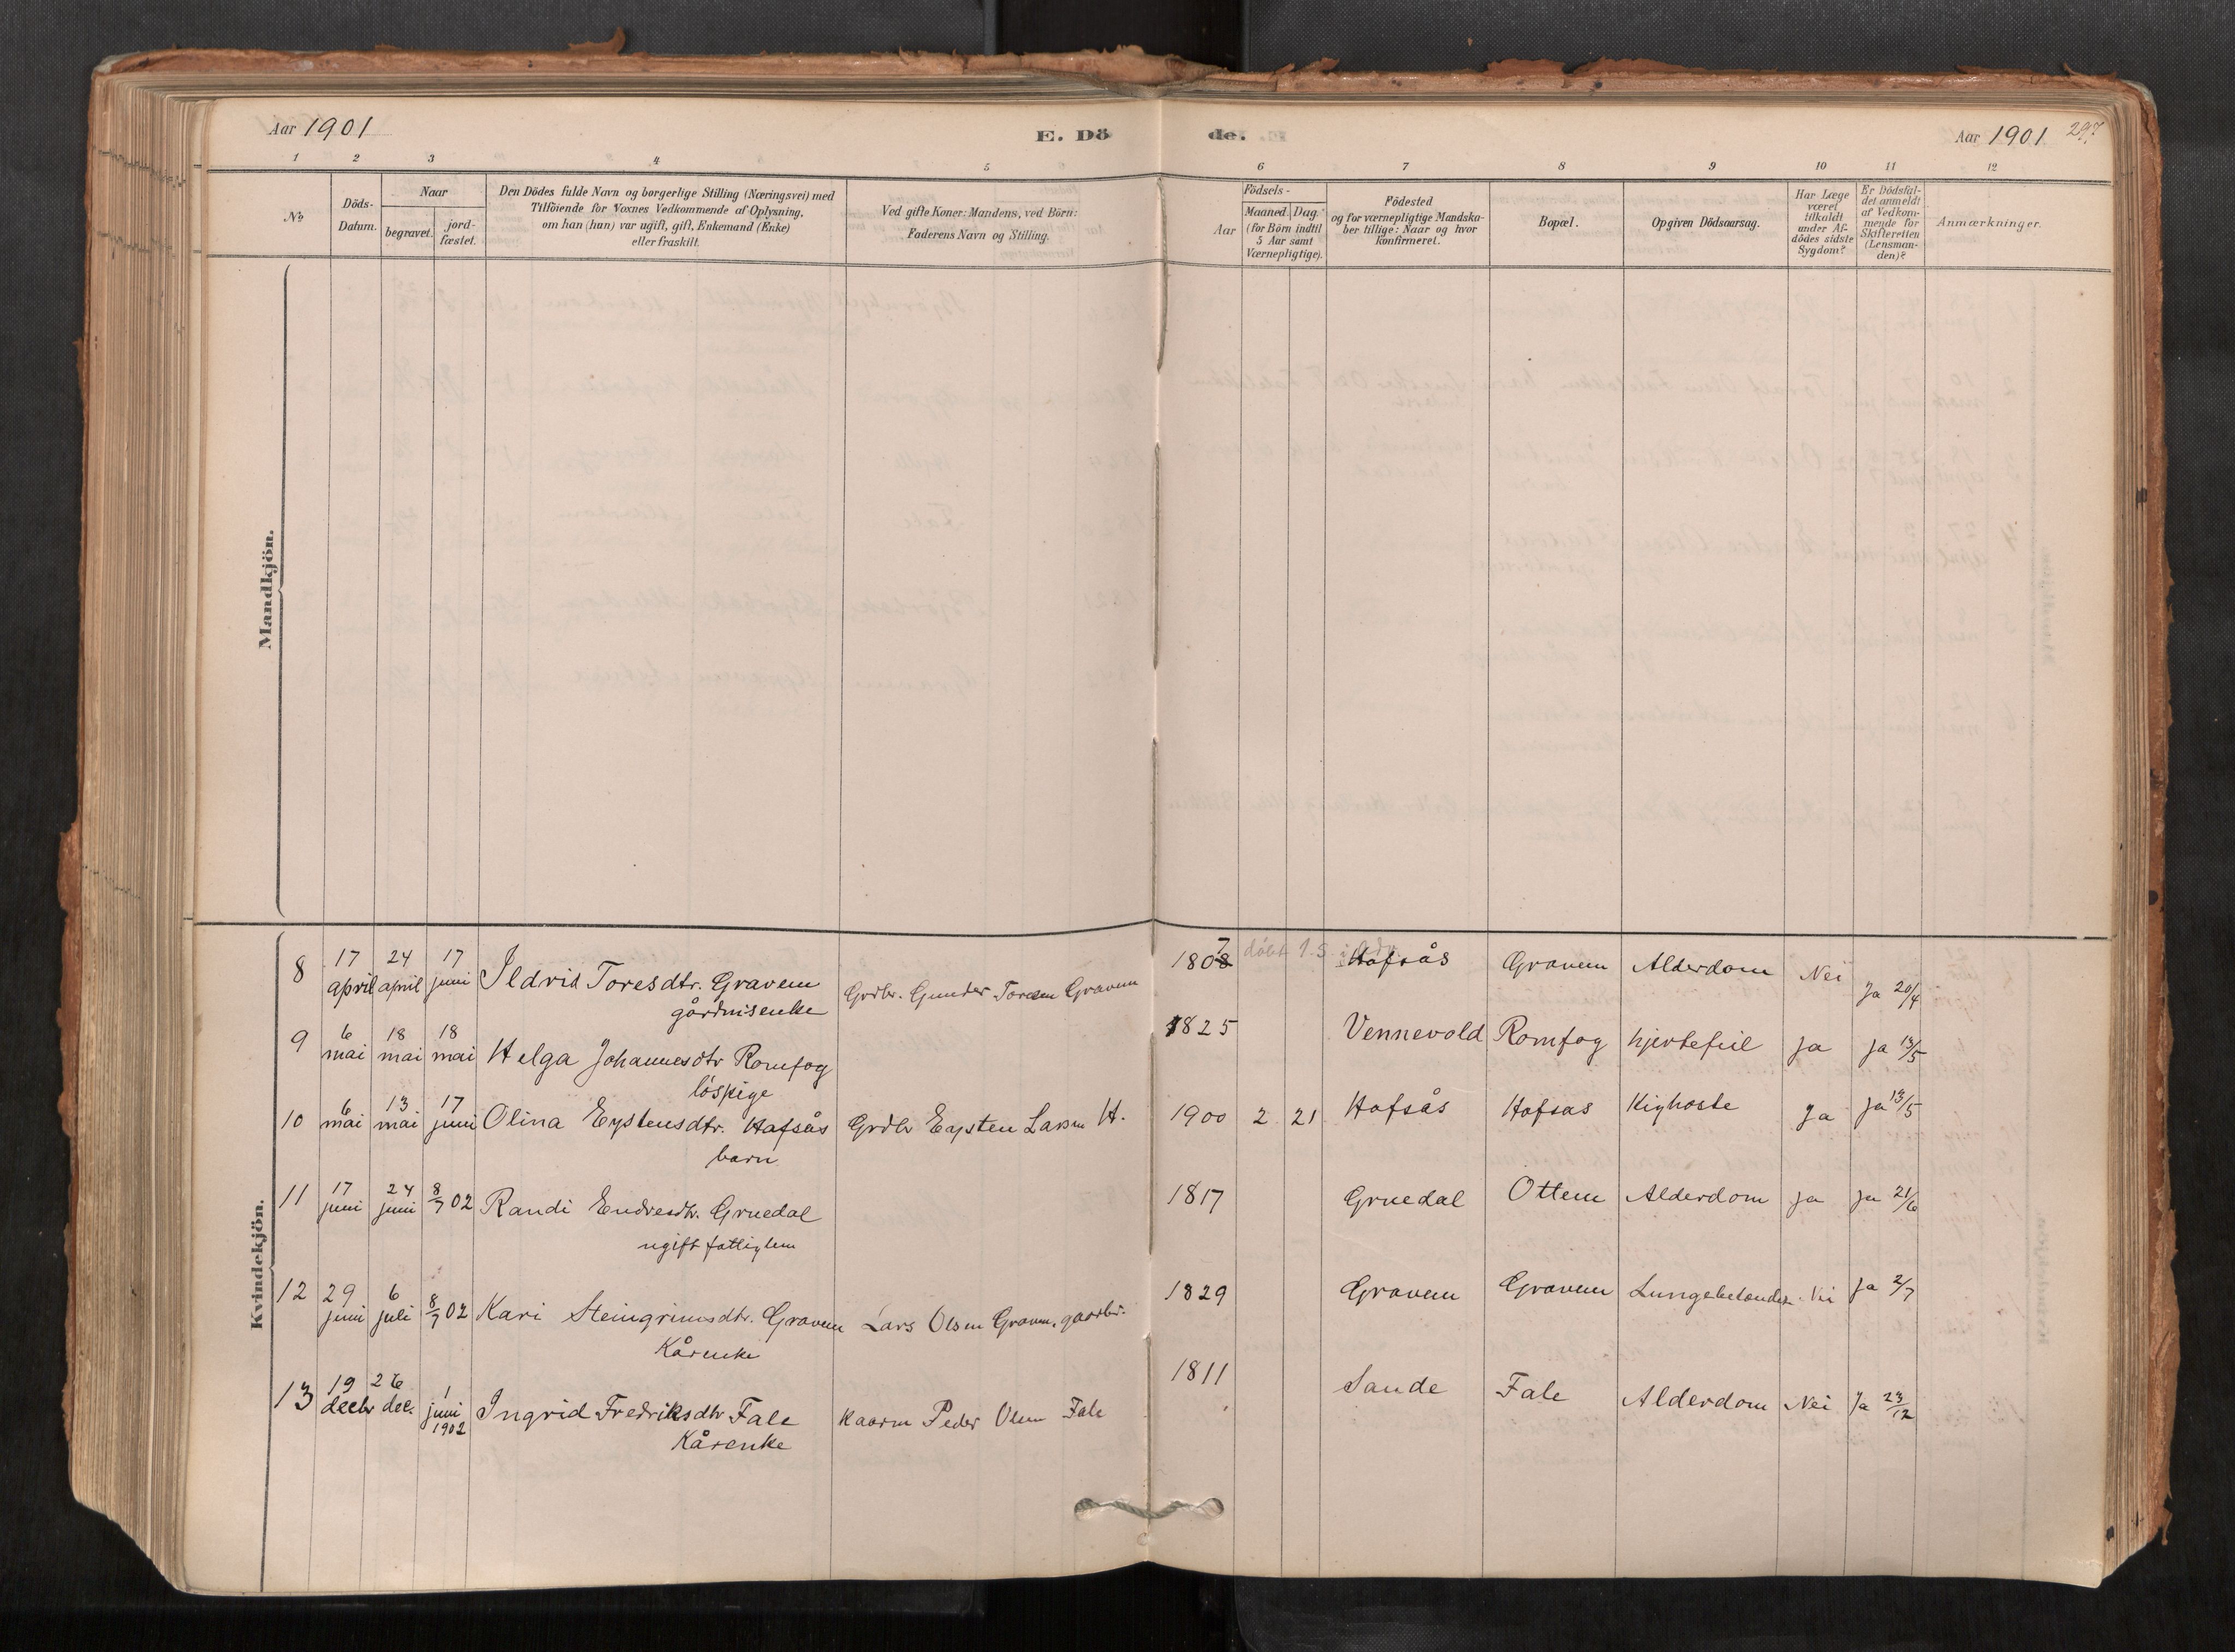 Aar 1901
E. Dö
de.
Aar 1901
297
1 2 3 4 5 6 7 8 9 10 11 12
No
Döds-Datum.
Naar
begravet.
jord-fæstet.
Den Dödes fulde Navn og borgerlige Stilling (Næringsvei) med
Tilföiende for Voxnes Vedkommende af Oplysning,
om han (hun) var ugift, gift, Enkemand (Enke)
eller fraskilt.
Ved gifte Koner: Mandens, ved Börn:
Faderens Navn og Stilling.
Aar
Födsels-
Maaned. Dag.
(for Börn indtil
5 Aar samt
Værnepligtige).
Födested
og for værnepligtige Mandska-
ber tillige: Naar og hvor
konfirmeret.
Bopæl.
Opgiven Dödsaarsag.
Har Læge
været
tilkaldt
under Af-
dödes sidste
Sygdom?
Er Dödsfal-
det anmeldt
af Vedkom-
mende for
Skifteretten
(Lensman-
den)?
Anmærkninger.
Mandkjön.
Kvindekjön.
8 17 april 24 april 17 juni Ildrid Toresdtr. Gravem Grdbr. Gunder Toresen Gravem 1808 7 döbt 1.S. Hafsås Gravem Alderdom Nei Ja 20/4
gårdmisenke
9 6 mai 18 mai 18 mai Helga Johannesdtr Romfog 1825 Vennevold Romfog hjertefeil Ja Ja 13/5
löspige
10 6 mai 13 mai 17 juni Olina Eystensdtr. Hafsås Grdbr Eysten Larsen H. 1900 2 21 Hafsås Hafsas Kighoste Ja Ja 13/5
barn
11 17 juni 24 juni 8/7 02 Randi Endresdtr. Gruedal 1817 Gruedal Ottem Alderdom Ja Ja 21/6
ugift fattiglem
12 29 juni 6 juli 8/7 02 Kari Steingrimsdtr. Gravem Lars Olsen Gravem, gaardbr. 1829 Gravem Gravem Lungebetændelse Nei Ja 2/7
Kårenke
13 19 decbr 26 dec. 1 juni 1902 Ingrid Fredriksdtr Fale Kaarm Peder Olsen Fale 1811 Sande Fale Alderdom Nei Ja 23/12
Kårenke